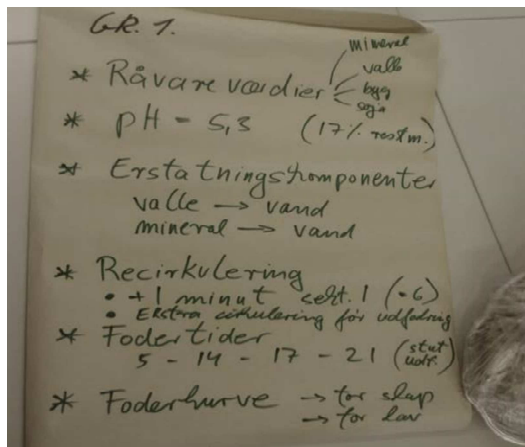 GR. 1.
* Råvare værdier mineral valle byg soja
* pH = 5,3 (17% restm.)
* Erstatningskomponenter
valle → vand
mineral → vand
* Recirkulering
• +1 minut sekt. 1 (-6)
• Ekstra cirkulering før udfodring
* Fodertider
5 - 14 - 17 - 21 (slut udf.)
* Foderkurve → for slap
→ for lav